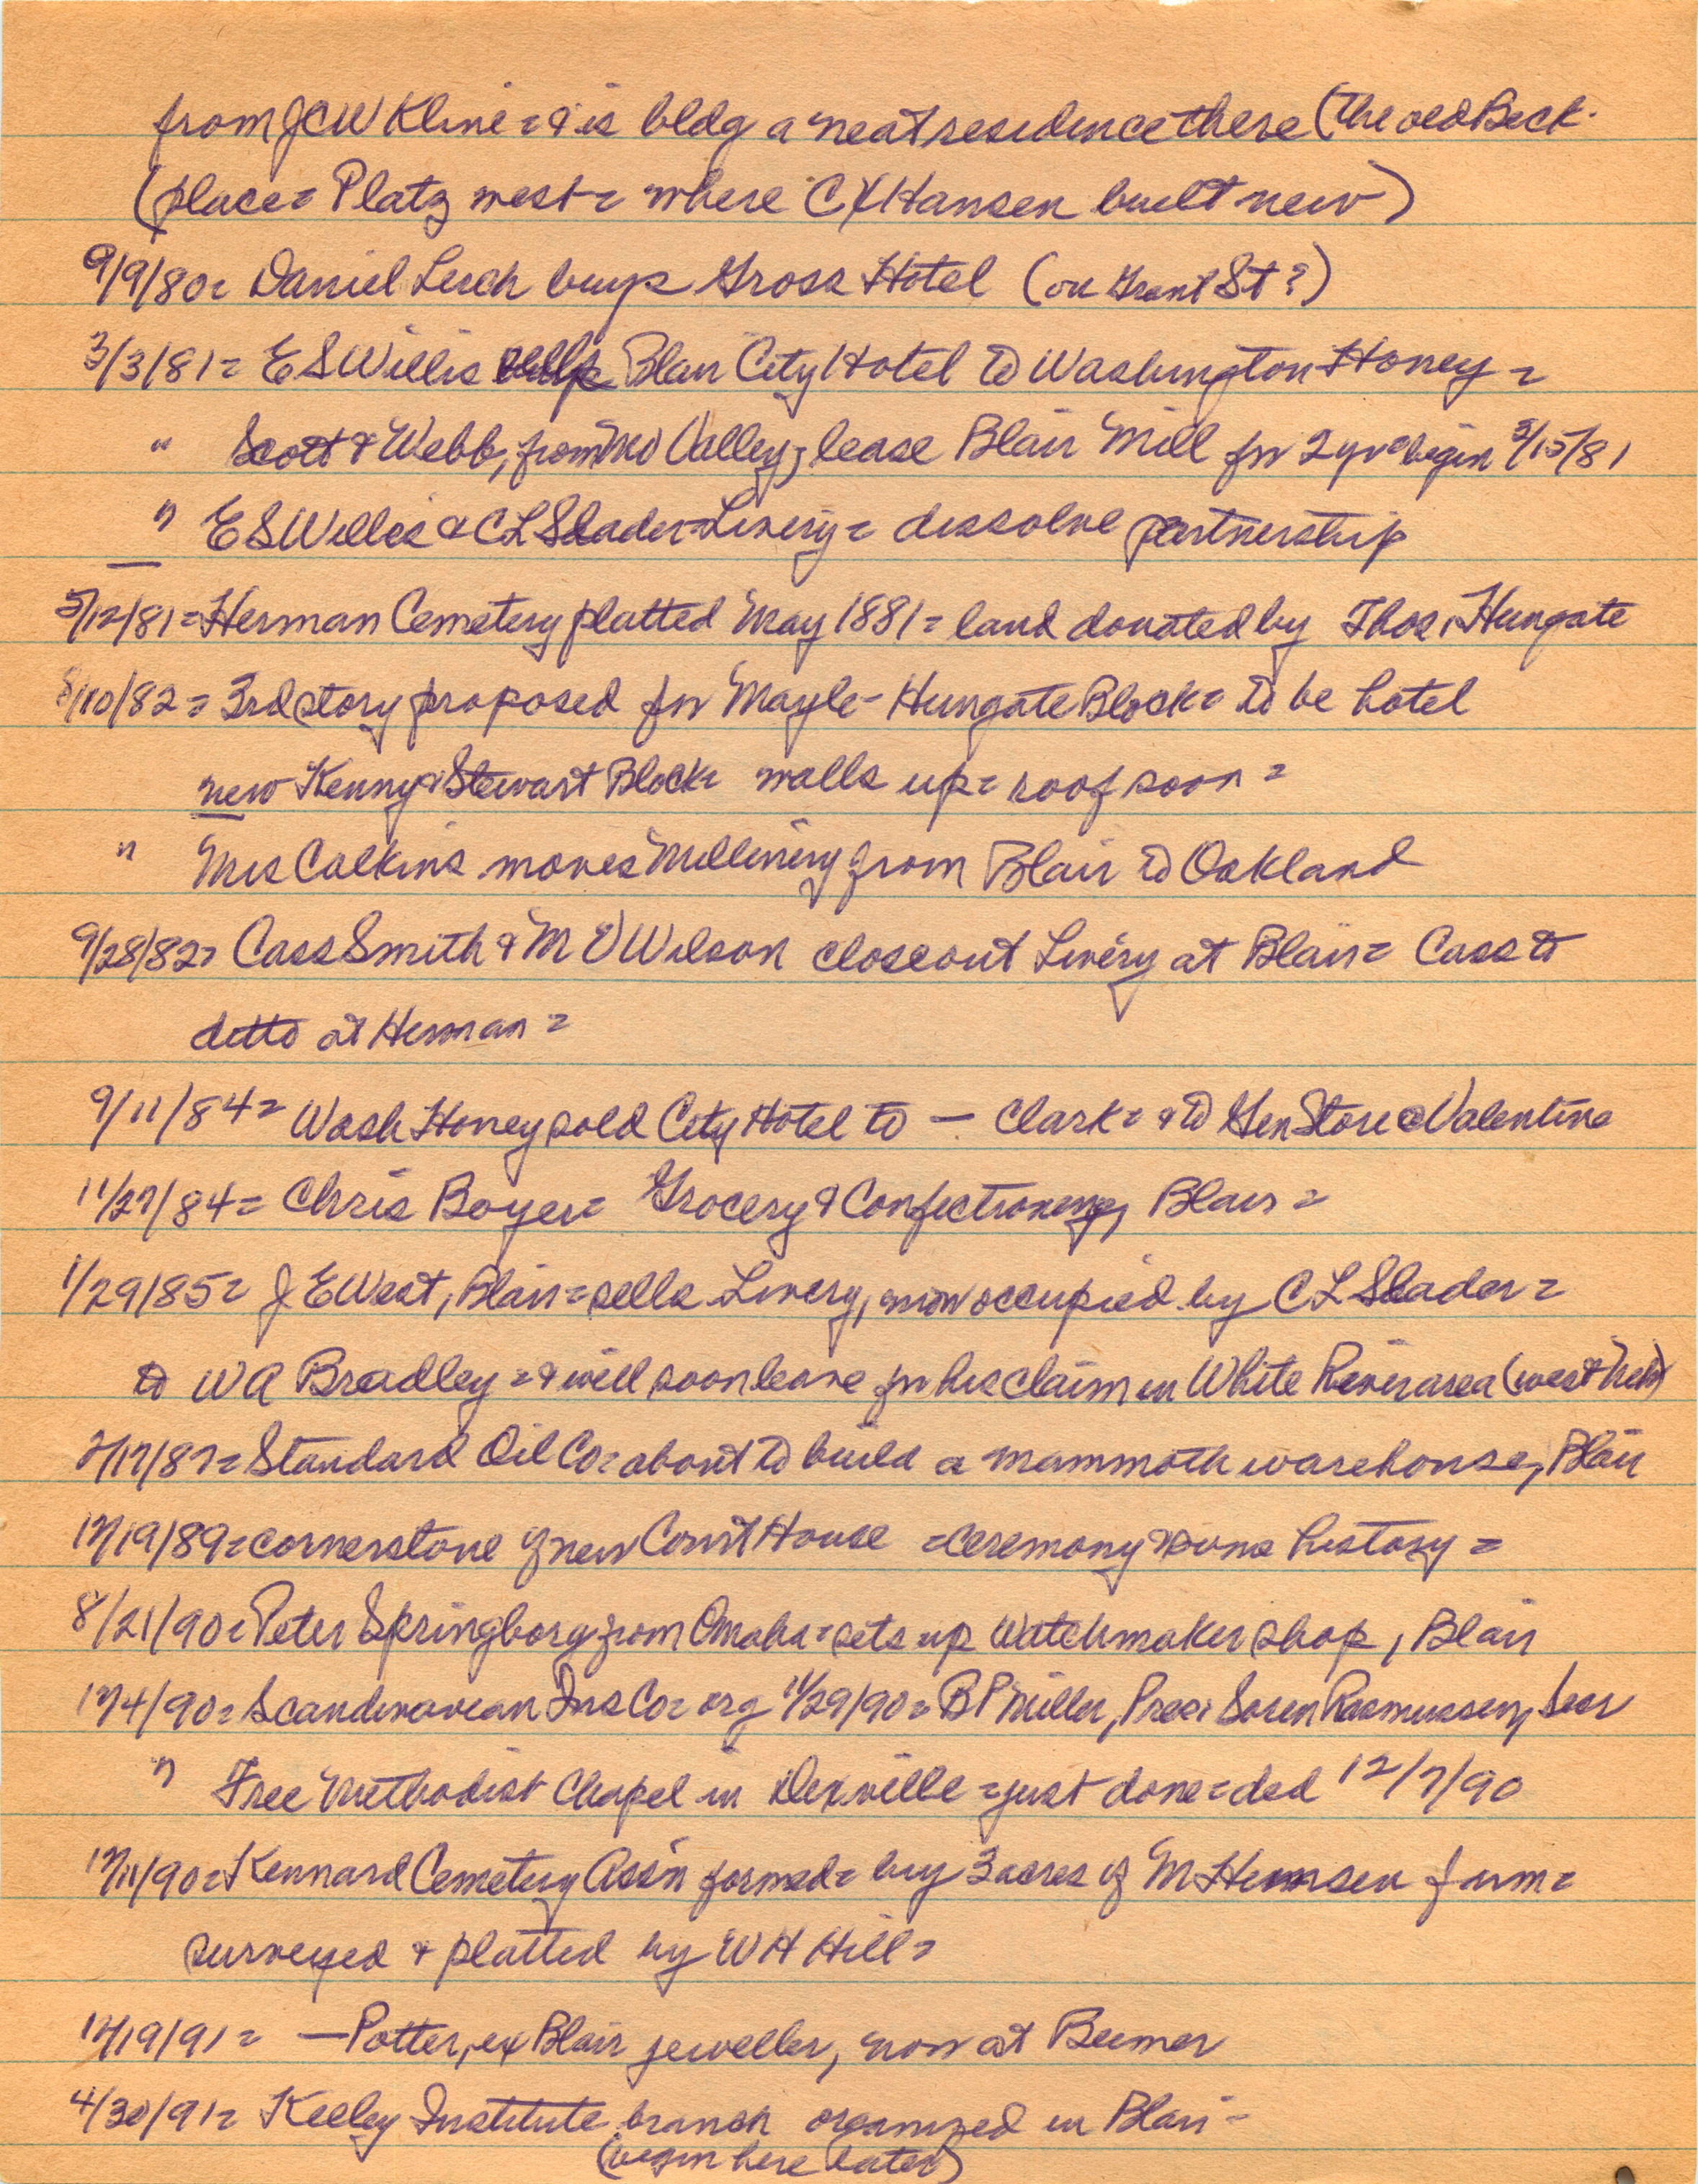 from JCW Kline = & is bldg a neat residence there (The old Beck
(place = Platz west = where C X Hansen built new)
9/9/80 = Daniel Lerch buys Gross Hotel (on Grant St?)
3/3/81 = E S Willis sells Blair City Hotel to Washington Honey =
" Scott & Webb, from Mo Valley, lease Blair Mill for 2 yrs begin 3/15/81
" E S Willis & C L Slader = Livery = dissolve partnership
5/12/81 = Herman Cemetery platted May 1881 = land donated by Thos. Hungate
8/10/82 = 3rd story proposed for Mayle-Hungate Block = to be hotel
new Kenny & Stewart Block = walls up = roof soon =
" Mrs Calkins moves Millinery from Blair to Oakland
9/28/82 = Cass Smith & M V Wilson closeout Livery at Blair = Cass to
ditto at Herman =
9/11/84 = Wash Honey sold City Hotel to — Clark = & to Gen Store @ Valentine
11/27/84 = Chris Boyer = Grocery & Confectionery, Blair =
1/29/85 = J E West, Blair = sells Livery, now occupied by C L Slader =
to W A Bradley = & will soon leave for his claim in White River area (west Neb)
2/17/87 = Standard Oil Co = about to build a mammoth warehouse, Blair
12/19/89 = cornerstone of new Court House = ceremony & some history =
8/21/90 = Peter Springborg from Omaha = sets up Watchmaker shop, Blair
12/4/90 = Scandinavian Ins Co = org 11/29/90 = B P Miller, Pres; Soren Rasmussen, Secr
" Free Methodist Chapel in Dexville = just done = ded 12/7/90
12/11/90 = Kennard Cemetery Ass'n formed = buy 3 acres of M Hemsen farm =
surveyed & platted by W H Hill =
12/19/91 = — Potter, ex Blair jeweller, now at Beemer
4/30/91 = Keeley Institute branch organized in Blair -
(begin here later)